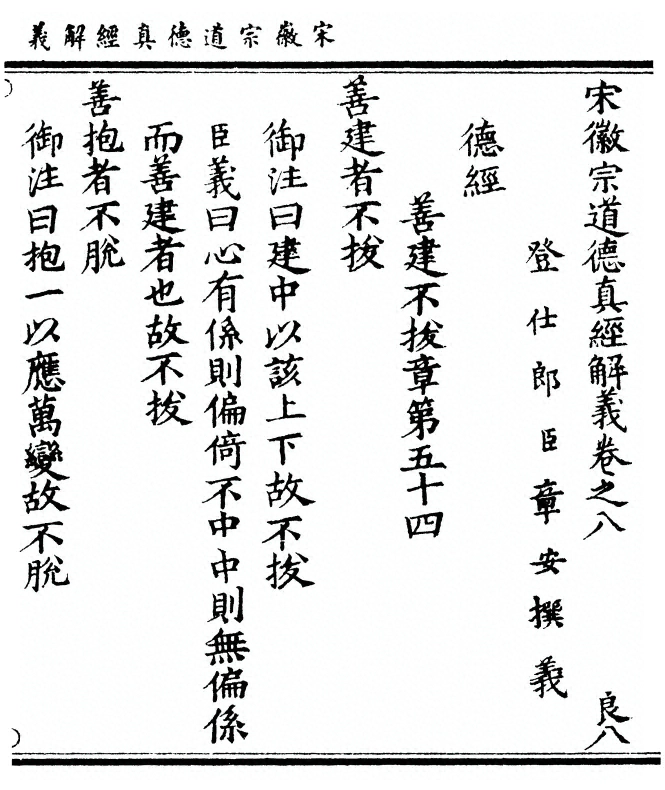 宋徽宗道德真經解義
宋徽宗道德真經解義卷之八 良八
登仕郎臣章安撰義
德經
善建不拔章第五十四
善建者不拔
御注曰建中以該上下故不拔
臣義曰心有係則偏倚不中中則無偏係
而善建者也故不拔
善抱者不脫
御注曰抱一以應萬變故不脫